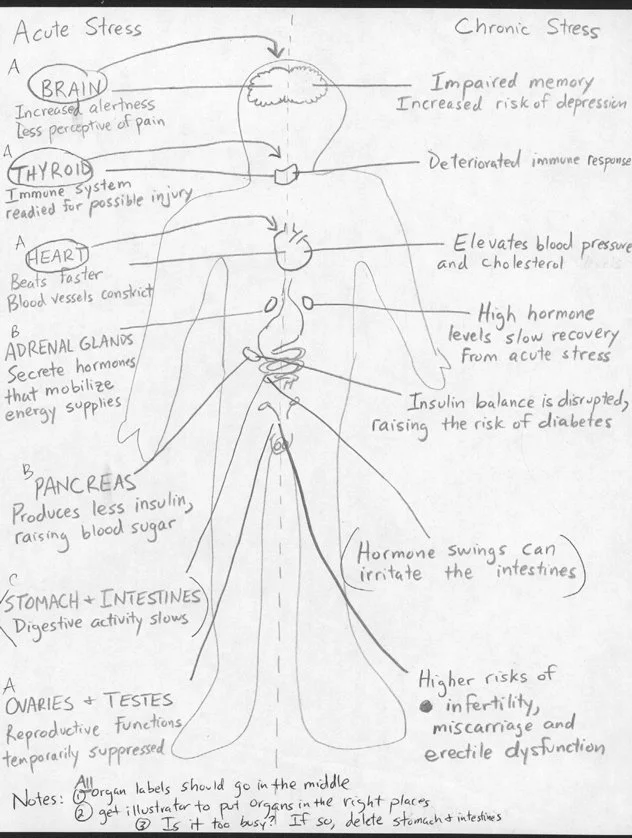 Acute Stress
Chronic Stress
A
BRAIN
Increased alertness
Less perceptive of pain
Impaired memory
Increased risk of depression
A
THYROID
Immune system
readied for possible injury
Deteriorated immune response
A
HEART
Beats faster
Blood vessels constrict
Elevates blood pressure
and cholesterol
B
ADRENAL GLANDS
Secrete hormones
that mobilize
energy supplies
High hormone
levels slow recovery
From acute stress
Insulin balance is disrupted,
raising the risk of diabetes
B
PANCREAS
Produces less insulin,
raising blood sugar
(Hormone swings can
irritate the intestines)
C
(STOMACH + INTESTINES
Digestive activity slows)
A
OVARIES + TESTES
Reproductive Functions
temporarily suppressed
Higher risks of
infertility,
miscarriage and
erectile dysfunction
Notes: ① All organ labels should go in the middle
② get illustrator to put organs in the right places
③ Is it too busy? If so, delete stomach + intestines